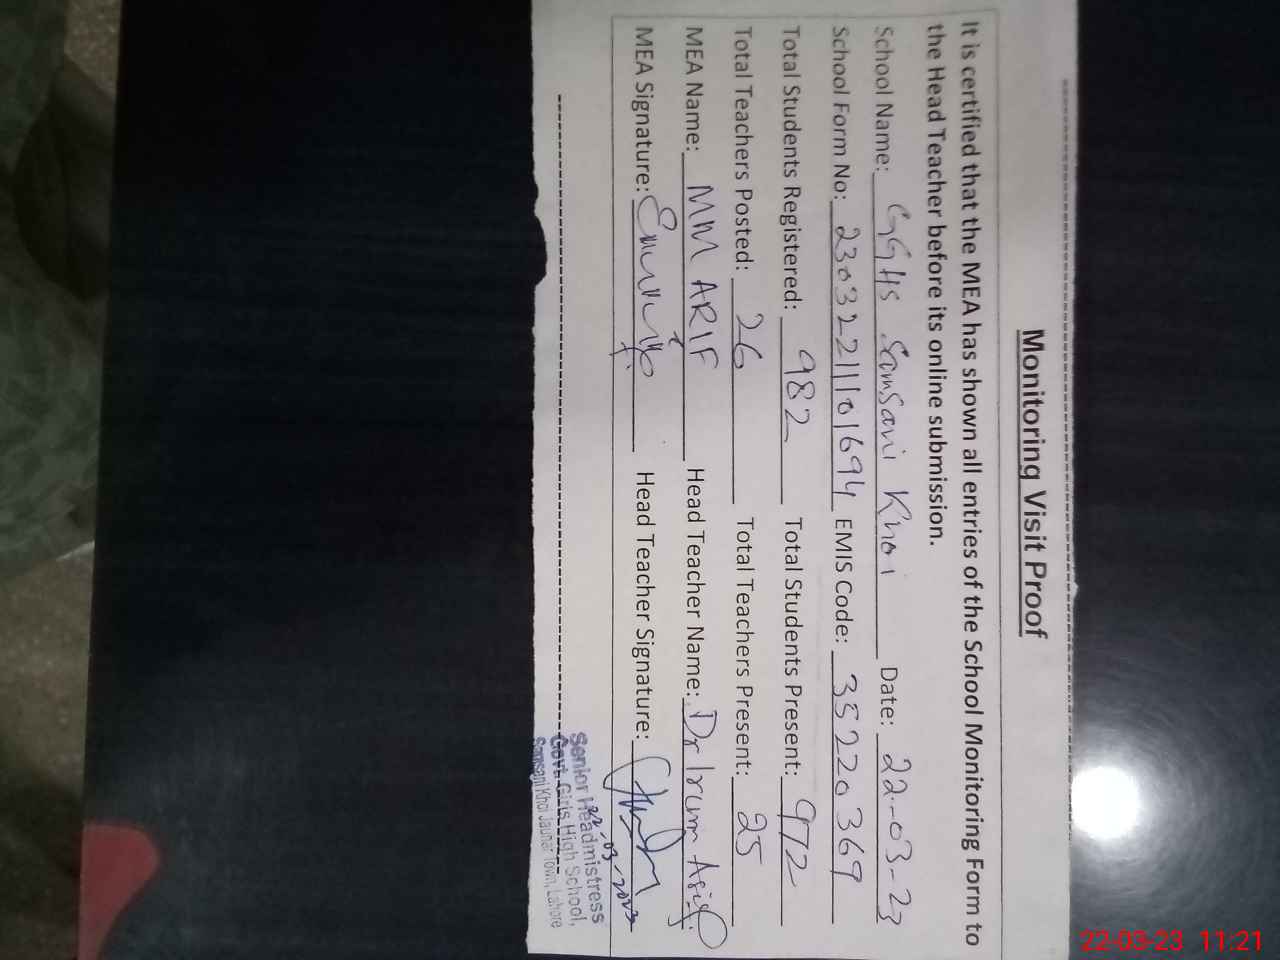 Monitoring Visit Proof
It is certified that the MEA has shown all entries of the School Monitoring Form to
the Head Teacher before its online submission.
School Name: GGHS Samsani Khoi Date: 22-03-23
School Form No: 230322111101694 EMIS Code: 35220369
Total Students Registered: 982 Total Students Present: 972
Total Teachers Posted: 26 Total Teachers Present: 25
MEA Name: MM ARIF Head Teacher Name: Dr Irum Asif
MEA Signature: Head Teacher Signature:
22-03-2023
Senior Headmistress
Govt. Girls High School,
Samsani Khoi Jauhar Town, Lahore
22-03-23 11:21